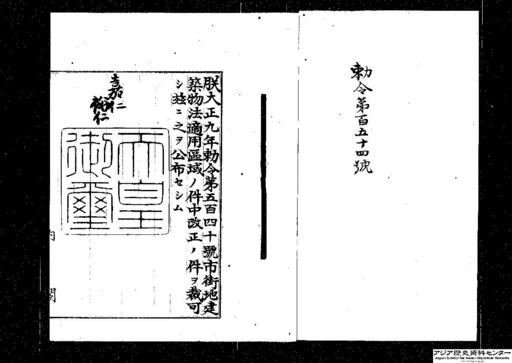 勅令第百五十四號
朕大正九年勅令第五百四十號市街地建
築物法適用區域ノ件中改正ノ件ヲ裁可
シ茲ニ之ヲ公布セシム
嘉仁
裕仁
天皇
御璽
内閣
アジア歴史資料センター
Japan Center for Asian Historical Records